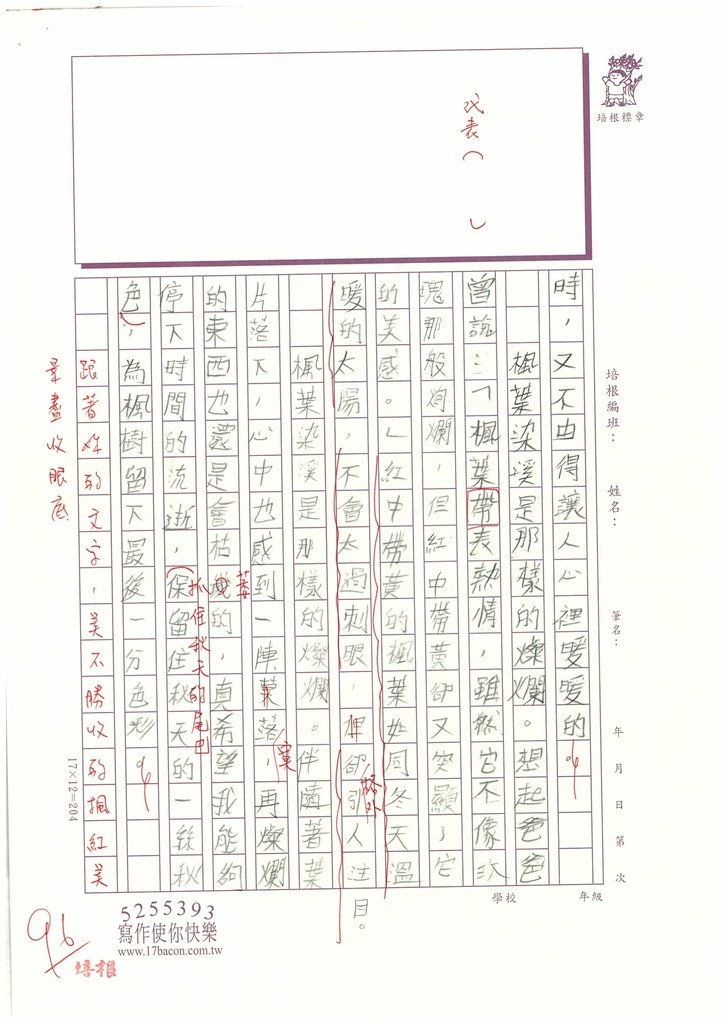 代表(
)
培根標章
培根編班：
姓名：
筆名：
年 月 日 第 次
學校
年級
時，又不由得讓人心裡暖暖的。
楓葉染溪是那樣的燦爛。想起爸爸
曾說：「楓葉帶表熱情，雖然它不像玫
瑰那般絢爛，但紅中帶黃卻又突顯了它
的美感。」紅中帶黃的楓葉如同冬天溫
暖的太陽，不會太過刺眼，卻引人注目。
格外
楓葉染溪是那樣的燦爛。伴隨著葉
片落下，心中也感到一陣落，再燦爛
寞
的東西也還是會枯的，真希望我能夠
萎
停下時間的流逝，保留住秋天的一絲秋
抓住秋天的尾巴
色，為楓樹留下最後一分色彩。
跟著妳的文字，美不勝收的楓紅美
景盡收眼底
17×12=204
96
培根
5255393
寫作使你快樂
www.17bacon.com.tw